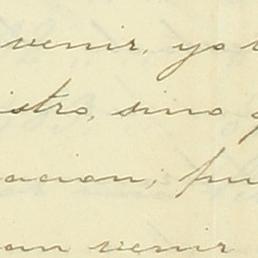 venir, yo
istro, sino
acion, pu
an venir